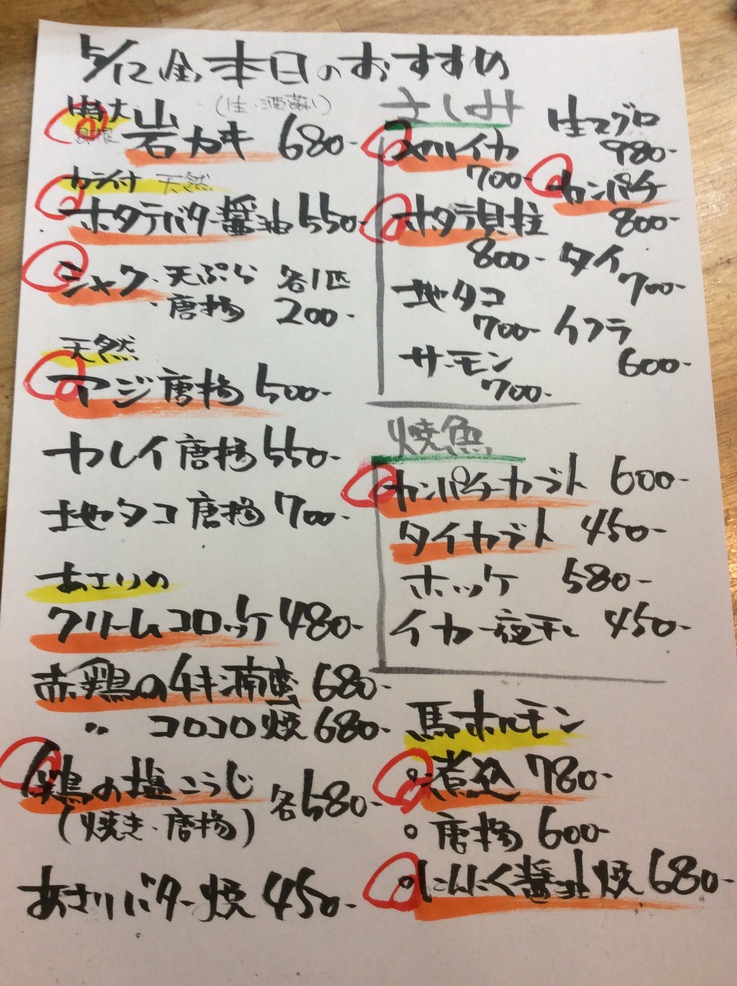 5/12(金)本日のおすすめ
特大 (生・酒蒸し)
岩ガキ 680-
カラ付 天然
ホタテバター醤油 550-
シャク・天ぷら 各1匹
・唐揚 200-
天然
アジ唐揚 500-
カレイ唐揚 550-
地タコ唐揚 700-
あさりの
クリームコロッケ 480-
赤鶏のチキン南蛮 680-
〃 コロコロ焼 680-
鶏の塩こうじ 各580-
(焼き・唐揚)
あさりバター焼 450-
さしみ
イカ
700-
ホタテ貝柱
800-
地タコ
700-
サーモン
700-
生マグロ
980-
カンパチ
800-
タイ
700-
イクラ
600-
焼魚
カンパチカブト 600-
タイカブト 450-
ホッケ 580-
イカ一夜干し 450-
馬ホルモン
○煮込 780-
○唐揚 600-
○にんにく醤油焼 680-